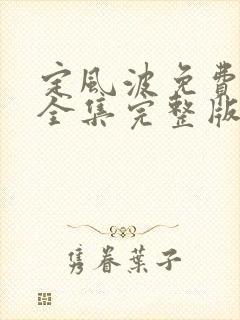 定風波免費
全集完整版
隽眷葉子